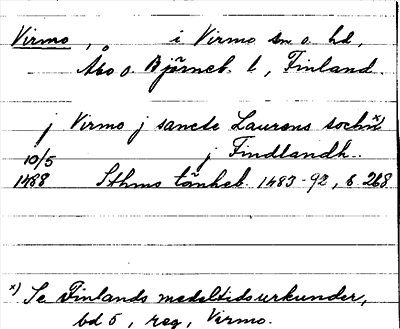 Virmo, i Virmo sn o. hd,
Åbo o. Björneb. l, Finland.
j Virmo j sancte Laurens sochn x)
10/5 j Findlandh..
1488 Sthms tänkeb. 1483-92, s. 268
x) Se Finlands medeltidsurkunder,
bd 5, reg, Virmo.